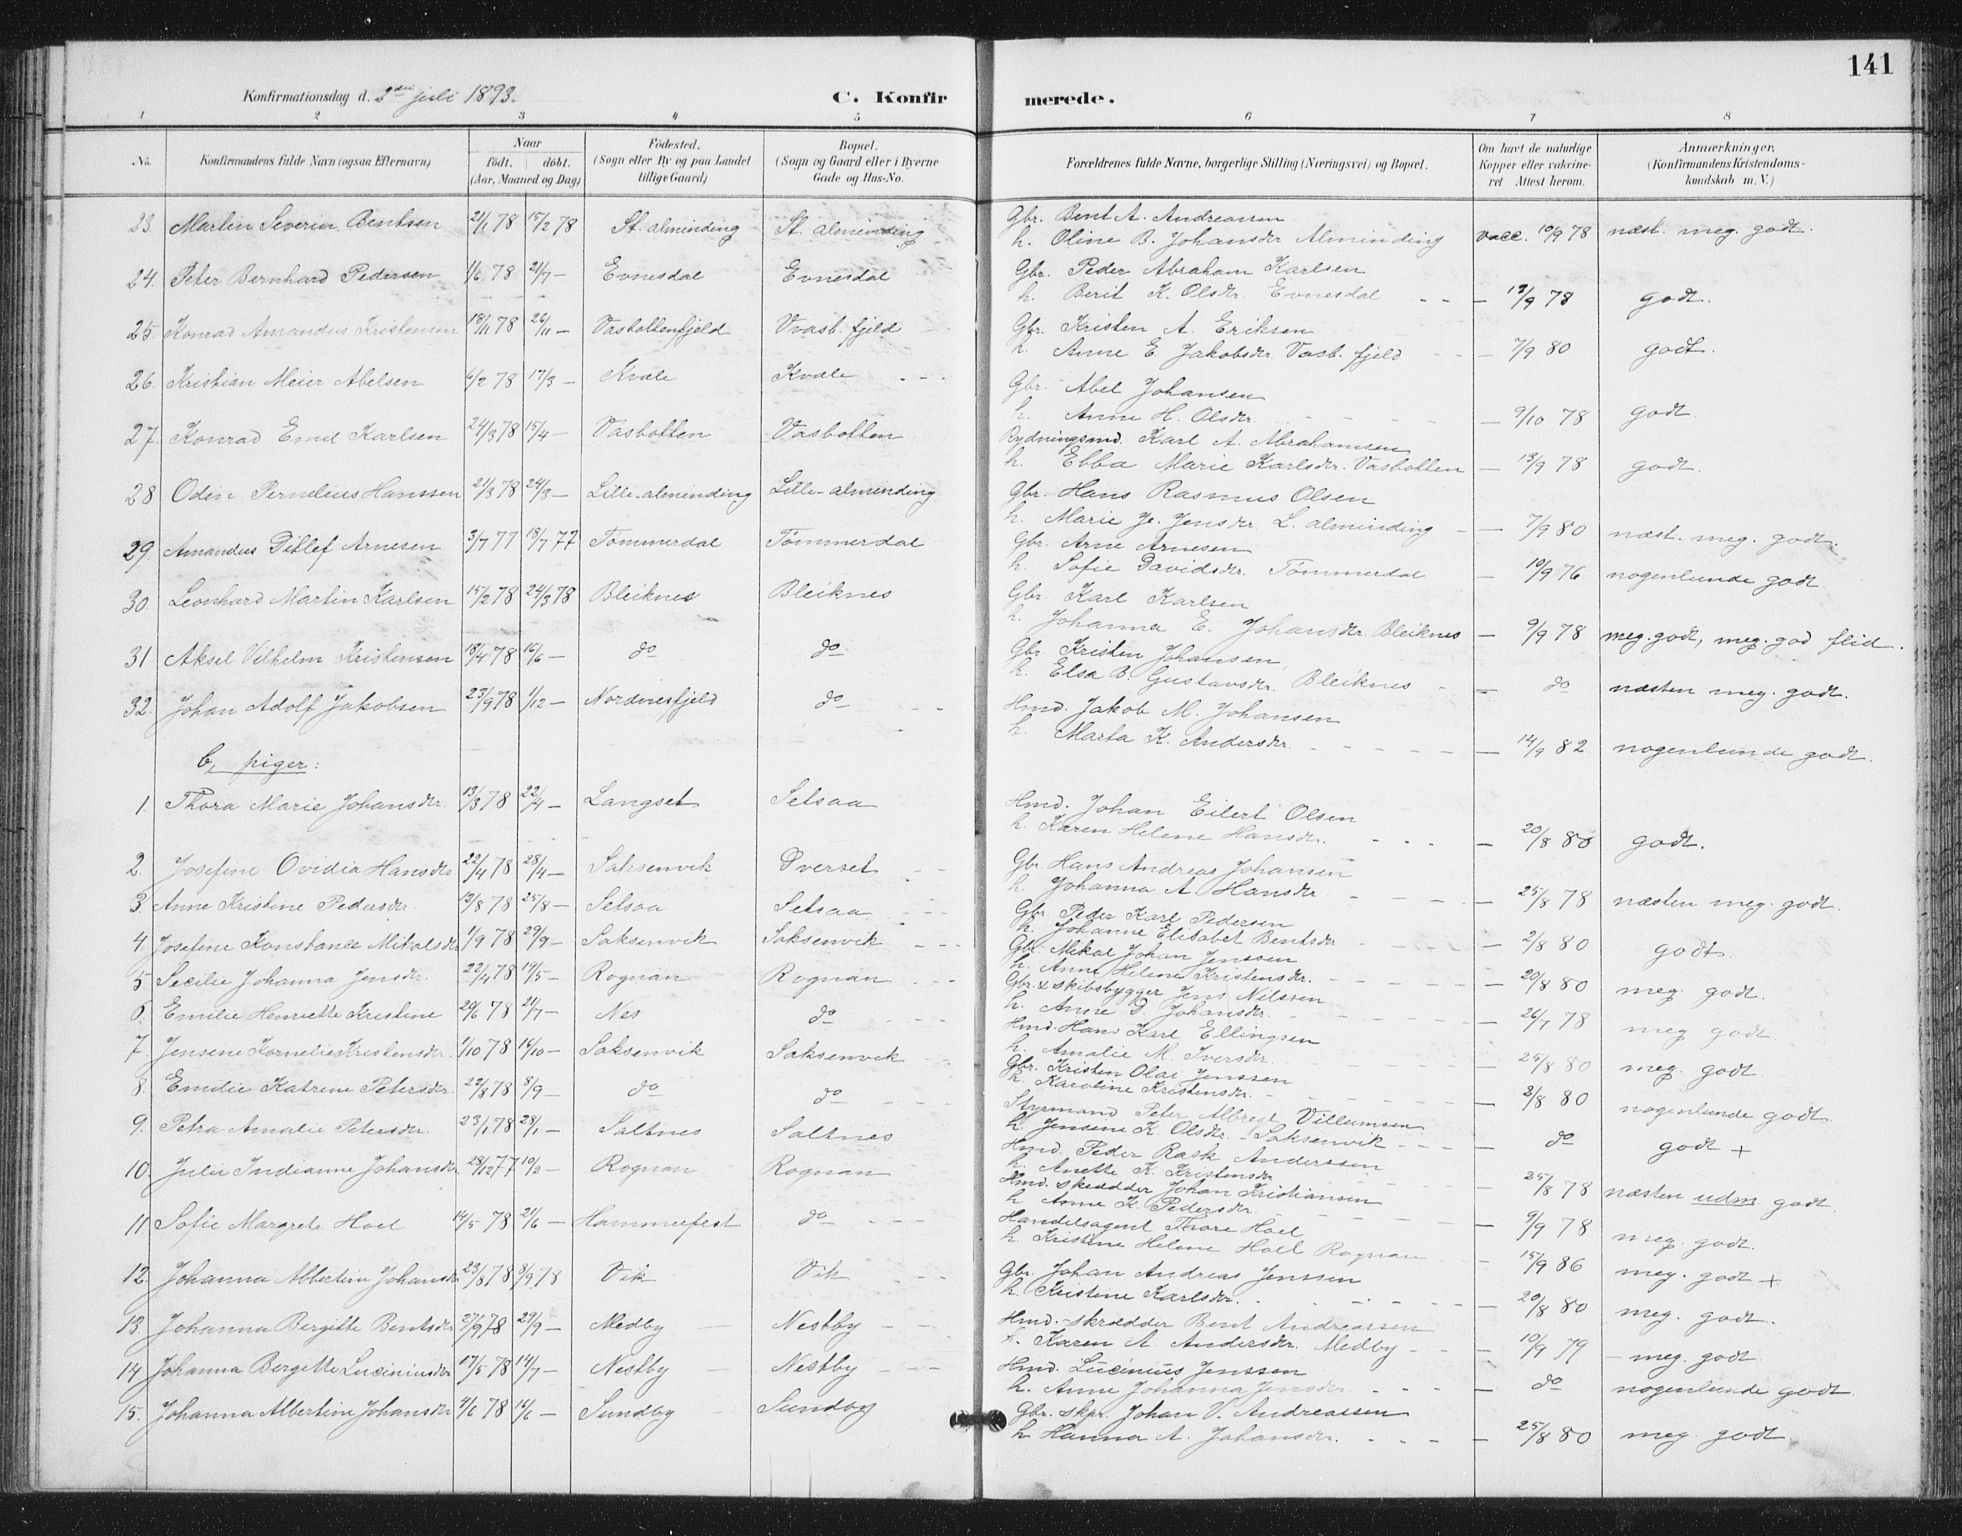 141
Konfirmationsdag d. 2den juli 1893.
C. Konfirmerede.
1 2 3 4 5 6 7 8
No. Konfirmandens fulde Navn (ogsaa Efternavn) Naar födt. döbt. (Aar, Maaned og Dag) Födested. (Sogn eller By og paa Landet tillige Gaard) Bopæl. (Sogn og Gaard eller i Byerne Gade og Hus-No. Forældrenes fulde Navne, borgerlige Stilling (Næringsvei) og Bopæl. Om havt de naturlige Kopper eller vakcineret Attest herom. Anmærkninger. (Konfirmandens Kristendomskundskab m. V.)
23. Martin Severin Bentsen 21/1 78 15/2 78 St. alminding St. alminding Gbr. Bent A. Andreassen
h. Oline B. Johansdr Alminding vacc. 10/9 78 næst. meg. godt.
24. Peter Bernhard Pedersen 1/6 78 21/7 — Evnesdal Evnesdal Gbr. Peder Abraham Karlsen
h. Berit K. Olsdr. Evnesdal — 13/9 78 godt.
25. Konrad Amandus Kristensen 18/11 78 26/11 — Vasbottenfjeld Vasb. fjeld Gbr. Kristen A. Eriksen
h. Anne E. Jakobsdr. Vasb. fjeld — 7/9 80 godt.
26. Kristian Meier Abelsen 6/2 78 17/3 — Kvæle Kvæle Gbr. Abel Johansen
h. Anne H. Olsdr. — 9/10 78 godt.
27. Konrad Emil Karlsen 24/3 78 15/4 — Vasbotten Vasbotten Rydningsmd. Karl A. Abrahamsen
h. Ebba Marie Karlsdr. Vasbotten — 13/9 78 godt.
28 Odin Pernelius Hanssen 21/3 78 24/3 — Lille-alminding Lille-alminding Gbr. Hans Rasmus Olsen
h. Marie Je. Jensdr. L. alminding — 7/9 80 næst. meg. godt.
29. Amandus Ditlef Arnesen 3/7 77 18/7 77 Tömmerdal Tömmerdal Gbr. Arne Arnesen
h. Sofie Davidsdr. Tömmerdal — 10/9 76 nogenlunde godt
30. Leonhard Martin Karlsen 15/2 78 24/3 78 Bleiknes Bleiknes Gbr. Karl Karlsen
h. Johanna E. Johansdr. Bleiknes — 9/9 78 meg. godt, meg. god flid.
31 Aksel Vilhelm Kristensen 18/4 78 16/6 — do do Gbr. Kristen Johansen
h. Elsa B. Gustavsdr. Bleiknes — do næsten meg. godt.
32. Johan Adolf Jakobsen 23/9 78 1/12 — Nordnesfjeld do Hmd. Jakob M. Johansen
h. Marta K. Andersdr. — 14/9 82 nogenlunde godt.
b, piger:
1. Thora Marie Johansdr. 13/3 78 22/4 — Langset Setsaa Hmd. Johan Eilert Olsen
h. Karen Helene Hansdr. — 20/8 80 godt.
2. Josefine Ovidia Hansdr 22/4 78 28/4 — Saksenvik Överset Gbr Hans Andreas Johansen
h. Johanna A. Hansdr — 25/8 78 næsten meg. godt.
3. Anne Kristine Pedersdr 13/8 78 25/8 — Setsaa Setsaa Gbr. Peder Karl Pedersen
h. Johanne Elisabet Bentsdr — 2/8 80 godt.
4 Josefine Konstance Mikalsdr 1/9 78 29/9 — Saksenvik Saksenvik Gbr. Mikal Johan Jenssen
h. Anne Helene Kristensdr. — 20/8 80 meg. godt.
5 Secilie Johanna Jensdr. 22/4 78 19/5 — Rognan Rognan Gbr. & skibsbygger Jens Nilssen
h. Anne D. Johansdr. — 26/7 78 meg godt.
6. Emilie Henriette Kristine 20/6 78 21/7 — Nes do Hmd. Hans Karl Ellingsen
h. Amalie M. Iversdr. — 25/8 80 meg. godt.
7. Jensine Kornelie Kristensdr. 1/10 78 16/10 — Saksenvik Saksenvik Gbr. Kristen Olai Jenssen
h. Karoline Kristensdr. — 2/8 80 nogenlunde godt.
8. Emilie Katrine Petersdr. 22/8 78 8/9 — do do Styrmand Peter Albregt Villumsen
h. Jensine K. Olsdr. Saksenvik — do godt +
9. Petra Amalie Petersdr. 23/1 78 28/1 — Saltnes Saltnes Hmd. Peder Rask Anderssen
h. Anette K. Kristensdr — 25/8 78 næsten udm. godt.
10. Julie Indianne Johansdr 28/12 77 10/2 — Rognan Rognan Hmd. skrædder Johan Kristiansen
h. Anne K. Pedersdr. — 9/9 78 meg. godt.
11. Sofie Margrete Hoel 14/5 78 21/6 — Hammerfest do Handelsagent Thore Hoel
h. Kristine Helene Hoel Rognan — 15/9 86 meg. godt +
12. Johanna Albertine Johansdr 23/8 78 8/9 78 Vik Vik Gbr. Johan Andreas Jenssen
h. Kristine Karlsdr. — 20/8 80 meg. godt.
13. Johanna Bergitte Bentsdr 27/9 78 29/9 — Medby Nestby Hmd. skrædder Bent Andreassen
h. Karen A. Andersdr. Medby — 10/9 79 meg. godt.
14 Johanna Bergette Luciniusdr 17/5 78 14/7 — Nestby Nestby Hmd. Lucinius Jenssen
h. Anne Johanna Jensdr — do nogenlunde godt.
15. Johanna Albertine Johansdr 4/6 78 16/6 — Sundby Sundby Gbr. skpr. Johan V. Andreassen
h. Hanna A. Johansdr. — 25/8 80 meg. godt.